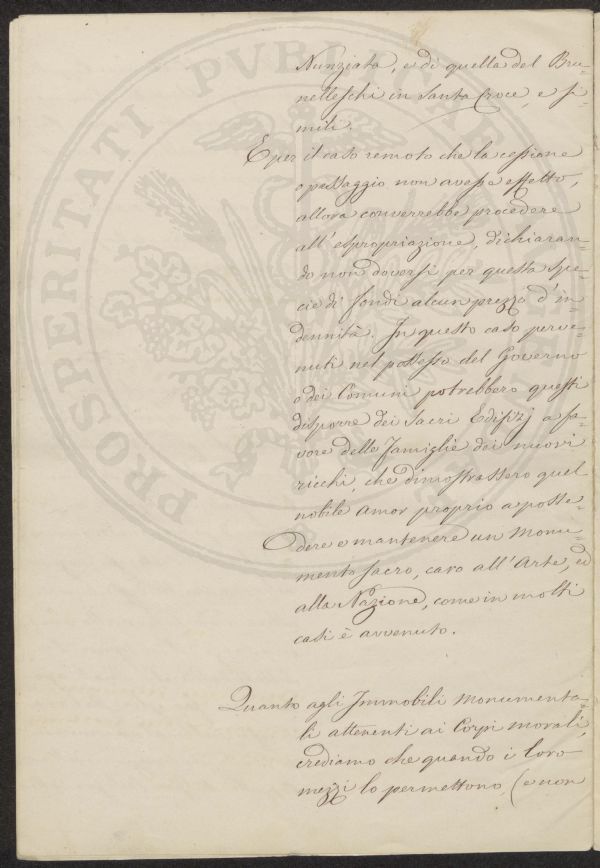 Nunziata, e di quella del Bru-
nelleschi in Santa Croce, e si-
mili.
E per il caso remoto che la cessione
o passaggio non avesse effetto,
allora converrebbe procedere
all'espropriazione, dichiaran-
do non doversi per questa spe-
cie di fondi alcun prezzo d'in-
dennità. In questo caso perve-
nuti nel possesso del Governo
o dei Comuni potrebbero questi
disporre dei Sacri Edifizj a fa-
vore delle Famiglie dei nuovi
ricchi, che dimostrassero quel
nobile amor proprio a posse-
dere e mantenere un Monu-
mento Sacro, caro all'Arte, ed
alla Nazione, come in molti
casi è avvenuto.
Quanto agli Immobili Monumenta-
li attenenti ai Corpi morali,
crediamo che quando i loro
mezzi lo permettono, (e non
PROSPERITATI PVBLICAE